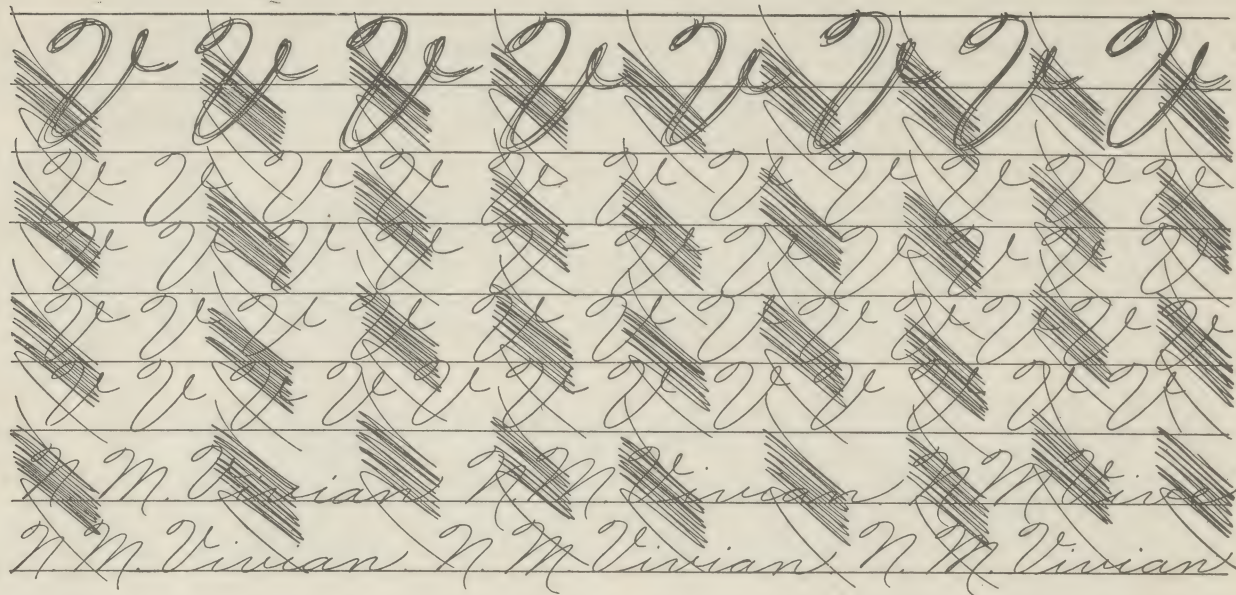 V V V V V V V V
V V V V V V V V V V V
V V V V V V V V V V V
V V V V V V V V V V V V
V V V V V V V V V V V V
N. M. Vivian N. M. Vivian N. M. Vive
N. M. Vivian N. M. Vivian N. M. Vivian